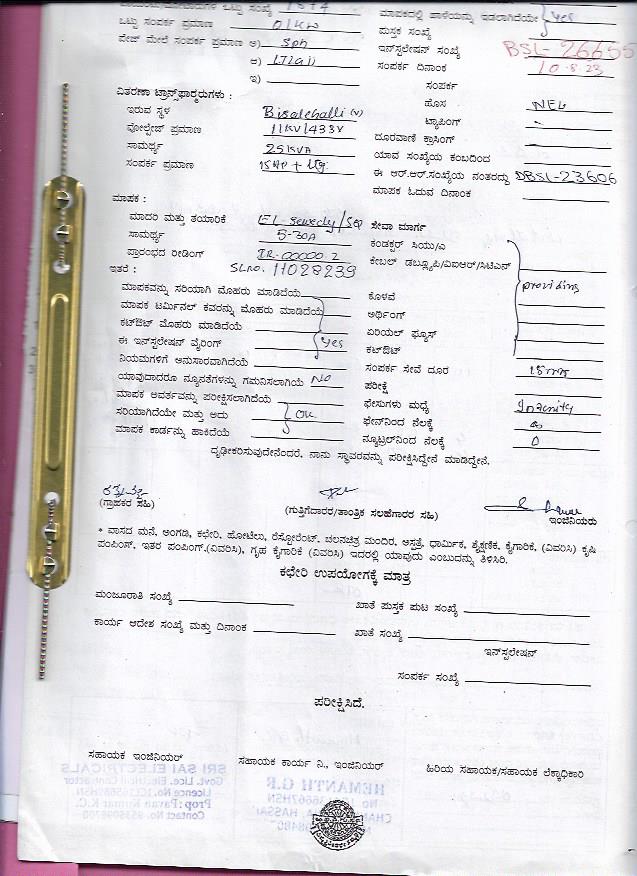 ಒಟ್ಟು ಸಂಖ್ಯೆ 15+4
ಒಟ್ಟು ಸಂಪರ್ಕ ಪ್ರಮಾಣ 01KW
ಮೇಲೆ ಸಂಪರ್ಕ ಪ್ರಮಾಣ ಅ) Sph
ಆ)
ಇ)
ಮಾಪಕದಲ್ಲಿ yes
ಪುಸ್ತಕ ಸಂಖ್ಯೆ
ಇನ್ಸ್‌ಲೇಷನ್ ಸಂಖ್ಯೆ BSL-26655
ಸಂಪರ್ಕ ದಿನಾಂಕ 10-8-23
ಸಂಪರ್ಕ
ವಿತರಣಾ ಟ್ರಾನ್ಸ್‌ಫಾರ್ಮರುಗಳು :
ಹೊಸ NEW
ಇರುವ ಸ್ಥಳ Bisalehalli (v)
ಟ್ಯಾಪಿಂಗ್ -
ವೋಲ್ಟೇಜ್ ಪ್ರಮಾಣ 11KV/433V
ದೂರವಾಣಿ ಕ್ರಾಸಿಂಗ್ -
ಸಾಮರ್ಥ್ಯ 25KVA
ಯಾವ ಸಂಖ್ಯೆಯ ಕಂಬದಿಂದ
ಸಂಪರ್ಕ ಪ್ರಮಾಣ 15HP + Ltg.
ಈ ಆರ್.ಆರ್.ಸಂಖ್ಯೆಯ ನಂತರದ್ದು DBSL-23606
ಮಾಪಕ ಓದುವ ದಿನಾಂಕ
ಮಾಪಕ :
ಮಾದರಿ ಮತ್ತು ತಯಾರಿಕೆ EL-Sewedy
ಸೇವಾ ಮಾರ್ಗ
ಸಾಮರ್ಥ್ಯ 5-30A
ಕಂಡಕ್ಟರ್ ಸಿಯು/ಎ
ಪ್ರಾರಂಭದ ರೀಡಿಂಗ್ IR-00000.2
ಕೇಬಲ್ ಡಬ್ಲ್ಯೂಪಿ/ವಿಐಆರ್/ಸಿಟಿಎಸ್
ಇತರೆ : SLno. 11028239
providing
ಮಾಪಕವನ್ನು ಸರಿಯಾಗಿ ಮೊಹರು ಮಾಡಿದೆಯೆ
ಕೊಳವೆ
ಮಾಪಕ ಟರ್ಮಿನಲ್ ಕವರನ್ನು ಮೊಹರು ಮಾಡಿದೆಯೆ
ಅರ್ಥಿಂಗ್
ಕಟ್‌ಔಟ್ ಮೊಹರು ಮಾಡಿದೆಯೆ
ಏರಿಯಲ್ ಫ್ಯೂಸ್
ಈ ಇನ್ಸ್‌ಲೇಷನ್ ವೈರಿಂಗ್ yes
ಕಟ್‌ಔಟ್
ನಿಯಮಗಳಿಗೆ ಅನುಸಾರವಾಗಿದೆಯೆ
ಸಂಪರ್ಕ ಸೇವೆ ದೂರ 15mts
ಯಾವುದಾದರೂ ನ್ಯೂನತೆಗಳನ್ನು ಗಮನಿಸಲಾಗಿಯೆ NO
ಪರೀಕ್ಷೆ
ಮಾಪಕ ಆವರ್ತವನ್ನು ಪರೀಕ್ಷಿಸಲಾಗಿದೆಯೆ
ಫೇಸುಗಳು ಮಧ್ಯೆ Infinity
ಸರಿಯಾಗಿದೆಯೇ ಮತ್ತು ಅದು OK
ಫೇಸ್‌ನಿಂದ ನೆಲಕ್ಕೆ
ಮಾಪಕ ಕಾರ್ಡನ್ನು ಹಾಕಿದೆಯೆ
ನ್ಯೂಟ್ರಲ್‌ನಿಂದ ನೆಲಕ್ಕೆ 0
ದೃಢೀಕರಿಸುವುದೇನೆಂದರೆ, ನಾನು ಸ್ಥಾವರವನ್ನು ಪರೀಕ್ಷಿಸಿದ್ದೇನೆ ಮಾಡಿದ್ದೇನೆ.
(ಗ್ರಾಹಕರ ಸಹಿ)
(ಗುತ್ತಿಗೆದಾರರ/ತಾಂತ್ರಿಕ ಸಲಹೆಗಾರರ ಸಹಿ)
ಇಂಜಿನಿಯರು
* ವಾಸದ ಮನೆ, ಅಂಗಡಿ, ಕಛೇರಿ, ಹೋಟೆಲು, ರೆಸ್ಟೋರೆಂಟ್, ಚಲನಚಿತ್ರ ಮಂದಿರ, ಆಸ್ಪತ್ರೆ, ಧಾರ್ಮಿಕ, ಶೈಕ್ಷಣಿಕ, ಕೈಗಾರಿಕೆ, (ವಿವರಿಸಿ) ಕೃಷಿ
ಪಂಪಿಂಗ್, ಇತರ ಪಂಪಿಂಗ್.(ವಿವರಿಸಿ), ಗೃಹ ಕೈಗಾರಿಕೆ (ವಿವರಿಸಿ) ಇದರಲ್ಲಿ ಯಾವುದು ಎಂಬುದನ್ನು ತಿಳಿಸಿರಿ.
ಕಛೇರಿ ಉಪಯೋಗಕ್ಕೆ ಮಾತ್ರ
ಮಂಜೂರಾತಿ ಸಂಖ್ಯೆ
ಖಾತೆ ಪುಸ್ತಕ ಪುಟ ಸಂಖ್ಯೆ
ಕಾರ್ಯ ಆದೇಶ ಸಂಖ್ಯೆ ಮತ್ತು ದಿನಾಂಕ
ಖಾತೆ ಸಂಖ್ಯೆ
ಇನ್ಸ್‌ಲೇಷನ್
ಸಂಪರ್ಕ ಸಂಖ್ಯೆ
ಪರೀಕ್ಷಿಸಿದೆ.
ಸಹಾಯಕ ಇಂಜಿನಿಯರ್
ಸಹಾಯಕ ಕಾರ್ಯ ನಿ., ಇಂಜಿನಿಯರ್
ಹಿರಿಯ ಸಹಾಯಕ/ಸಹಾಯಕ ಲೆಕ್ಕಾಧಿಕಾರಿ
SRI SAI ELECTRICALS
Govt. Lice. Electrical Contractor
Prop: Pavan Kumar K.C.
HEMANTH G.R